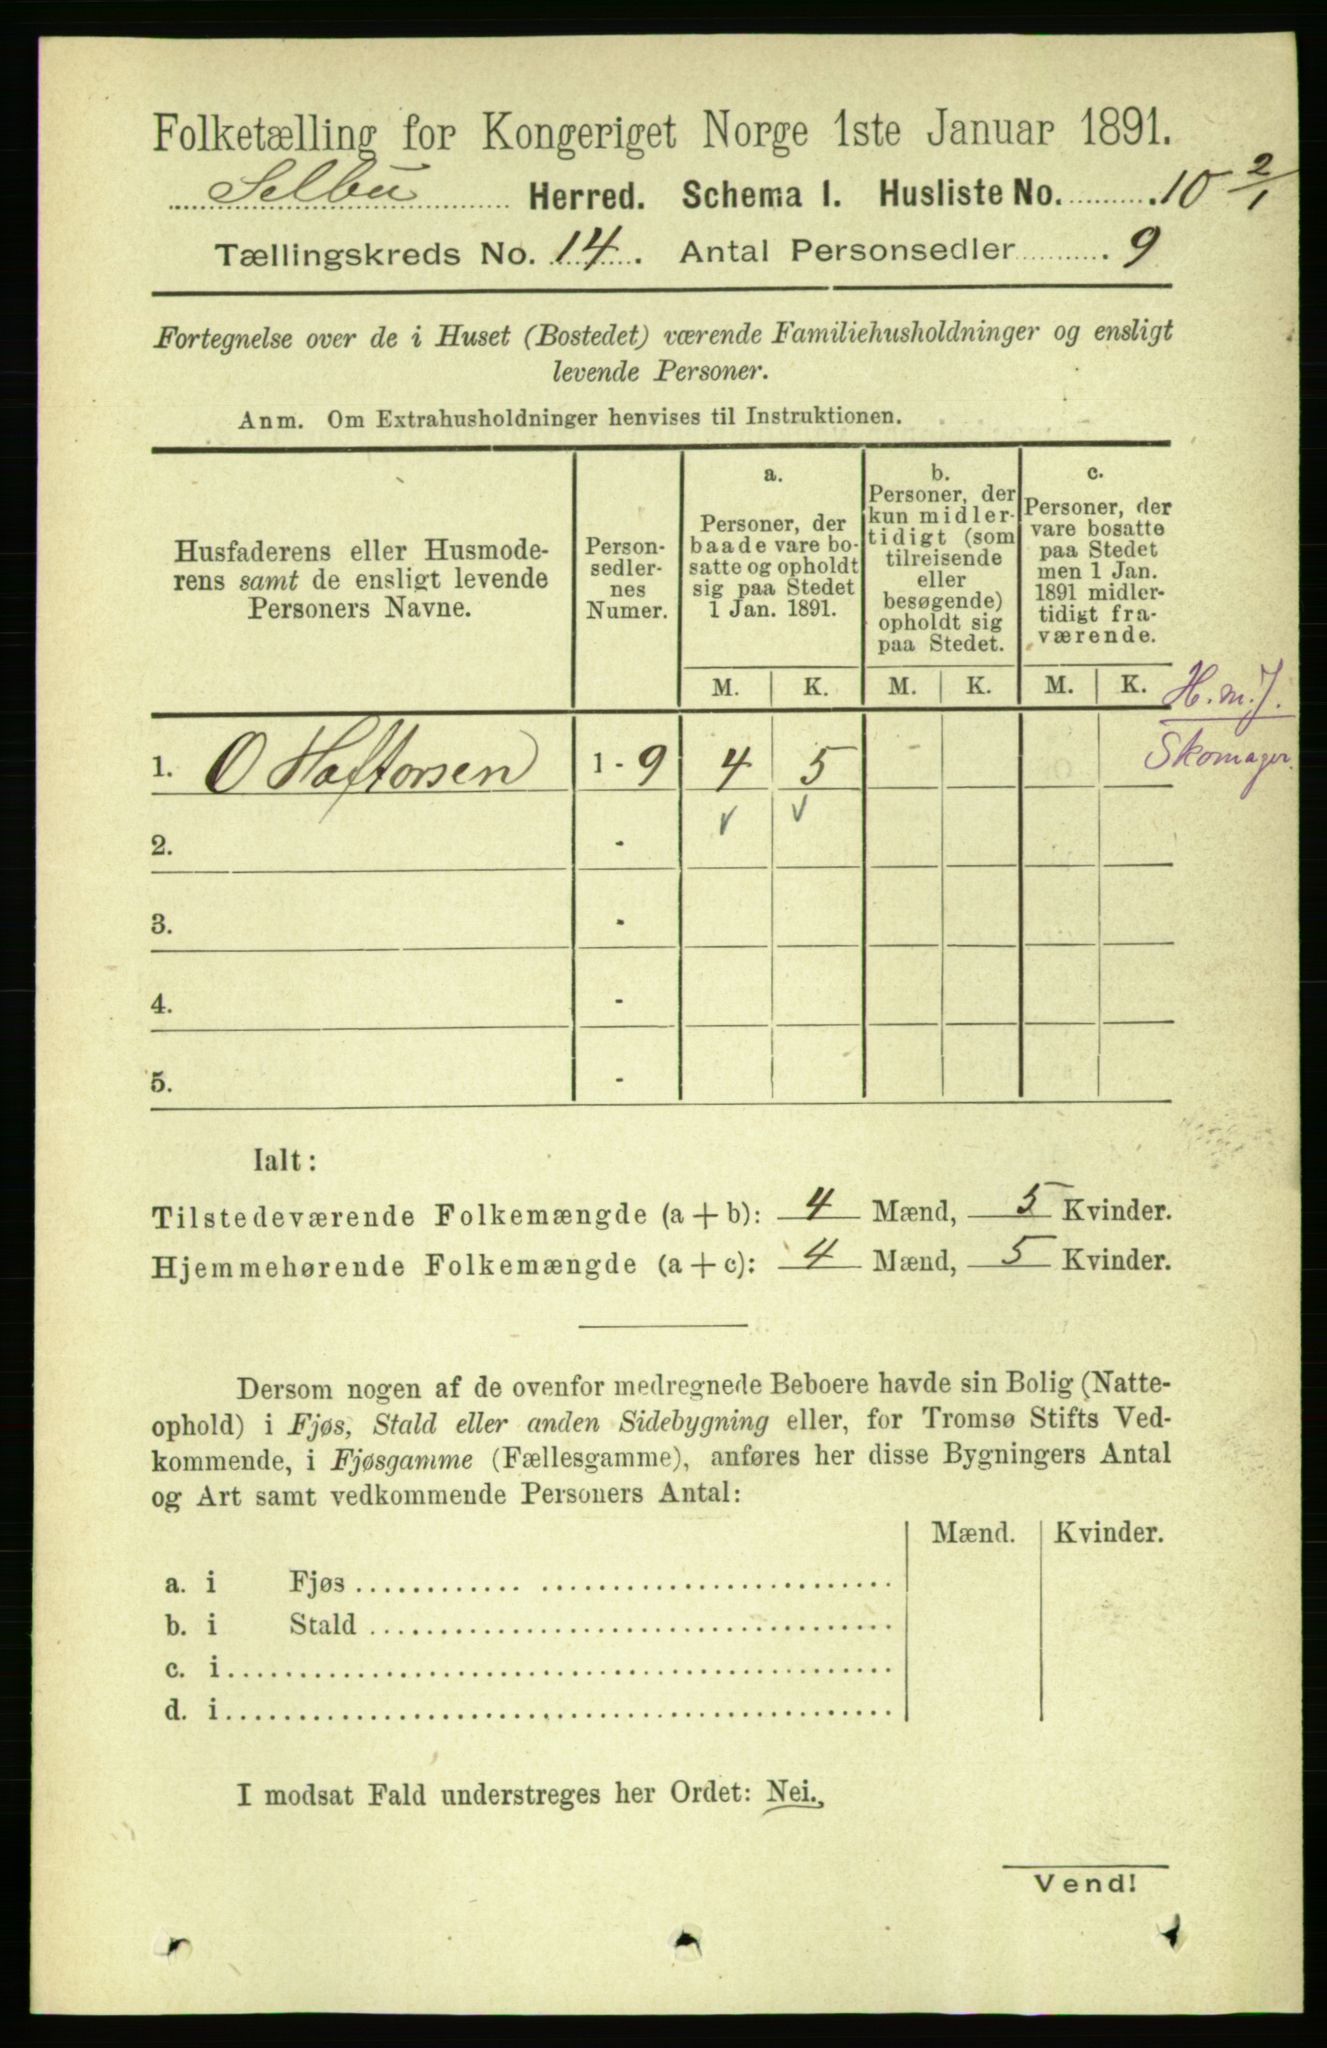 Folketælling for Kongeriget Norge 1ste Januar 1891.
Selbu Herred. Schema I. Husliste No. 10 2/1
Tællingskreds No. 14. Antal Personsedler 9
Fortegnelse over de i Huset (Bostedet) værende Familiehusholdninger og ensligt
levende Personer.
Anm. Om Extrahusholdninger henvises til Instruktionen.
Husfaderens eller Husmode-
rens samt de ensligt levende
Personers Navne.
Person-
sedler-
nes
Numer.
a.
Personer, der
baade vare bo-
satte og opholdt
sig paa Stedet
1 Jan. 1891.
b.
Personer, der
kun midler-
tidigt (som
tilreisende
eller
besøgende)
opholdt sig
paa Stedet.
c.
Personer, der
vare bosatte
paa Stedet
men 1 Jan.
1891 midler-
tidigt fra-
værende.
M. K. M. K. M. K. H.m.J.
1. O Haftorsen 1 - 9 4 5 Skomager.
2. -
3. -
4. -
5. -
Ialt:
Tilstedeværende Folkemængde (a + b): 4 Mænd, 5 Kvinder.
Hjemmehørende Folkemængde (a + c): 4 Mænd, 5 Kvinder.
Dersom nogen af de ovenfor medregnede Beboere havde sin Bolig (Natte-
ophold) i Fjøs, Stald eller anden Sidebygning eller, for Tromsø Stifts Ved-
kommende, i Fjøsgamme (Fællesgamme), anføres her disse Bygningers Antal
og Art samt vedkommende Personers Antal:
Mænd. Kvinder.
a. i Fjøs
b. i Stald
c. i
d. i
I modsat Fald understreges her Ordet: Nei.
Vend!